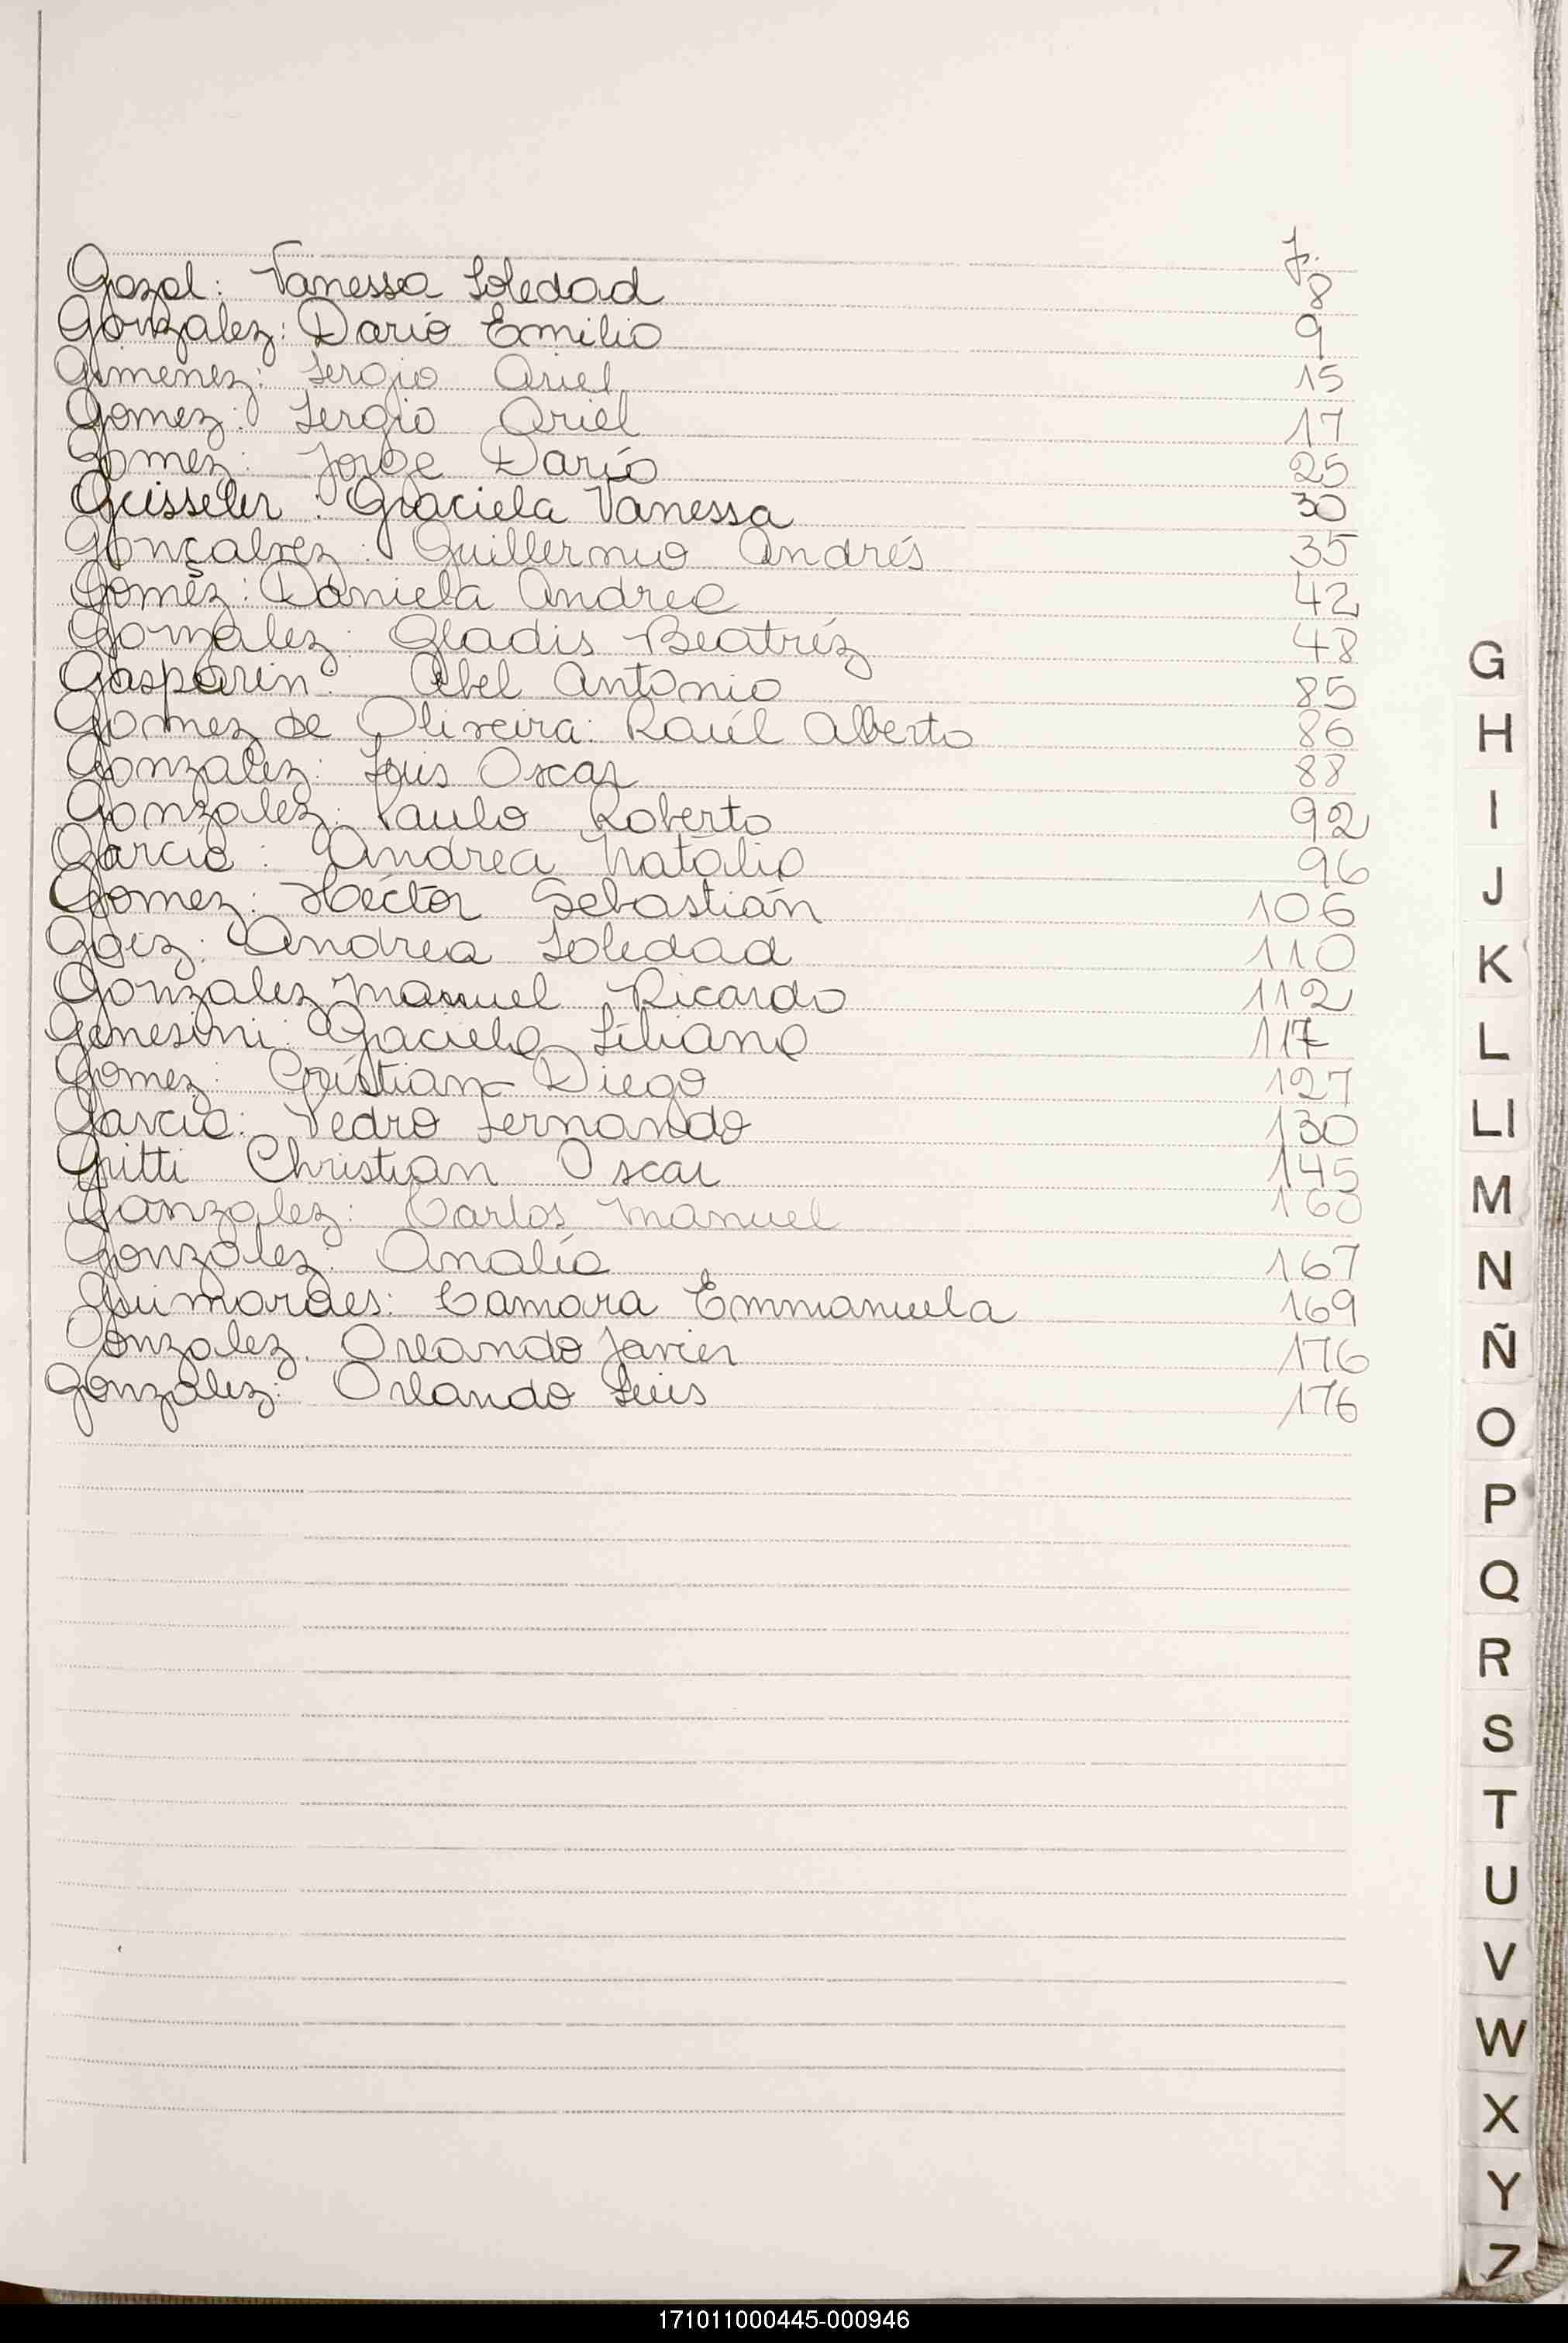 f.
Gozal: Vanessa Soledad 8
Gonzalez: Darío Emilio 9
Gimenez: Sergio Ariel 15
Gomez: Sergio Ariel 17
Gomez: Jorge Darío 25
Geisseler: Graciela Vanessa 30
Gonçalvez: Guillermo Andrés 35
Gomez: Daniela Andrea 42
Gonzalez: Gladis Beatríz 48
Gasparin: Abel Antonio 85
Gomez de Oliveira: Raúl Alberto 86
Gonzalez: Luis Oscar 88
Gonzalez: Paulo Roberto 92
García: Andrea Natalia 96
Gomez: Héctor Sebastián 106
Goez: Andrea Soledad 110
Gonzalez Manuel Ricardo 112
Genesini: Gaciela Liliana 117
Gomez: Cristian Diego 127
Garcia: Pedro Fernando 130
Gritti Christian Oscar 145
Gonzalez: Carlos Manuel 160
Gonzalez: Analía 167
Guimaraes: Camara Emmanuela 169
Gonzalez. Orlando Javier 176
Gonzalez: Orlando Luis 176
G
H
I
J
K
L
Ll
M
N
Ñ
O
P
Q
R
S
T
U
V
W
X
Y
Z
171011000445-000946